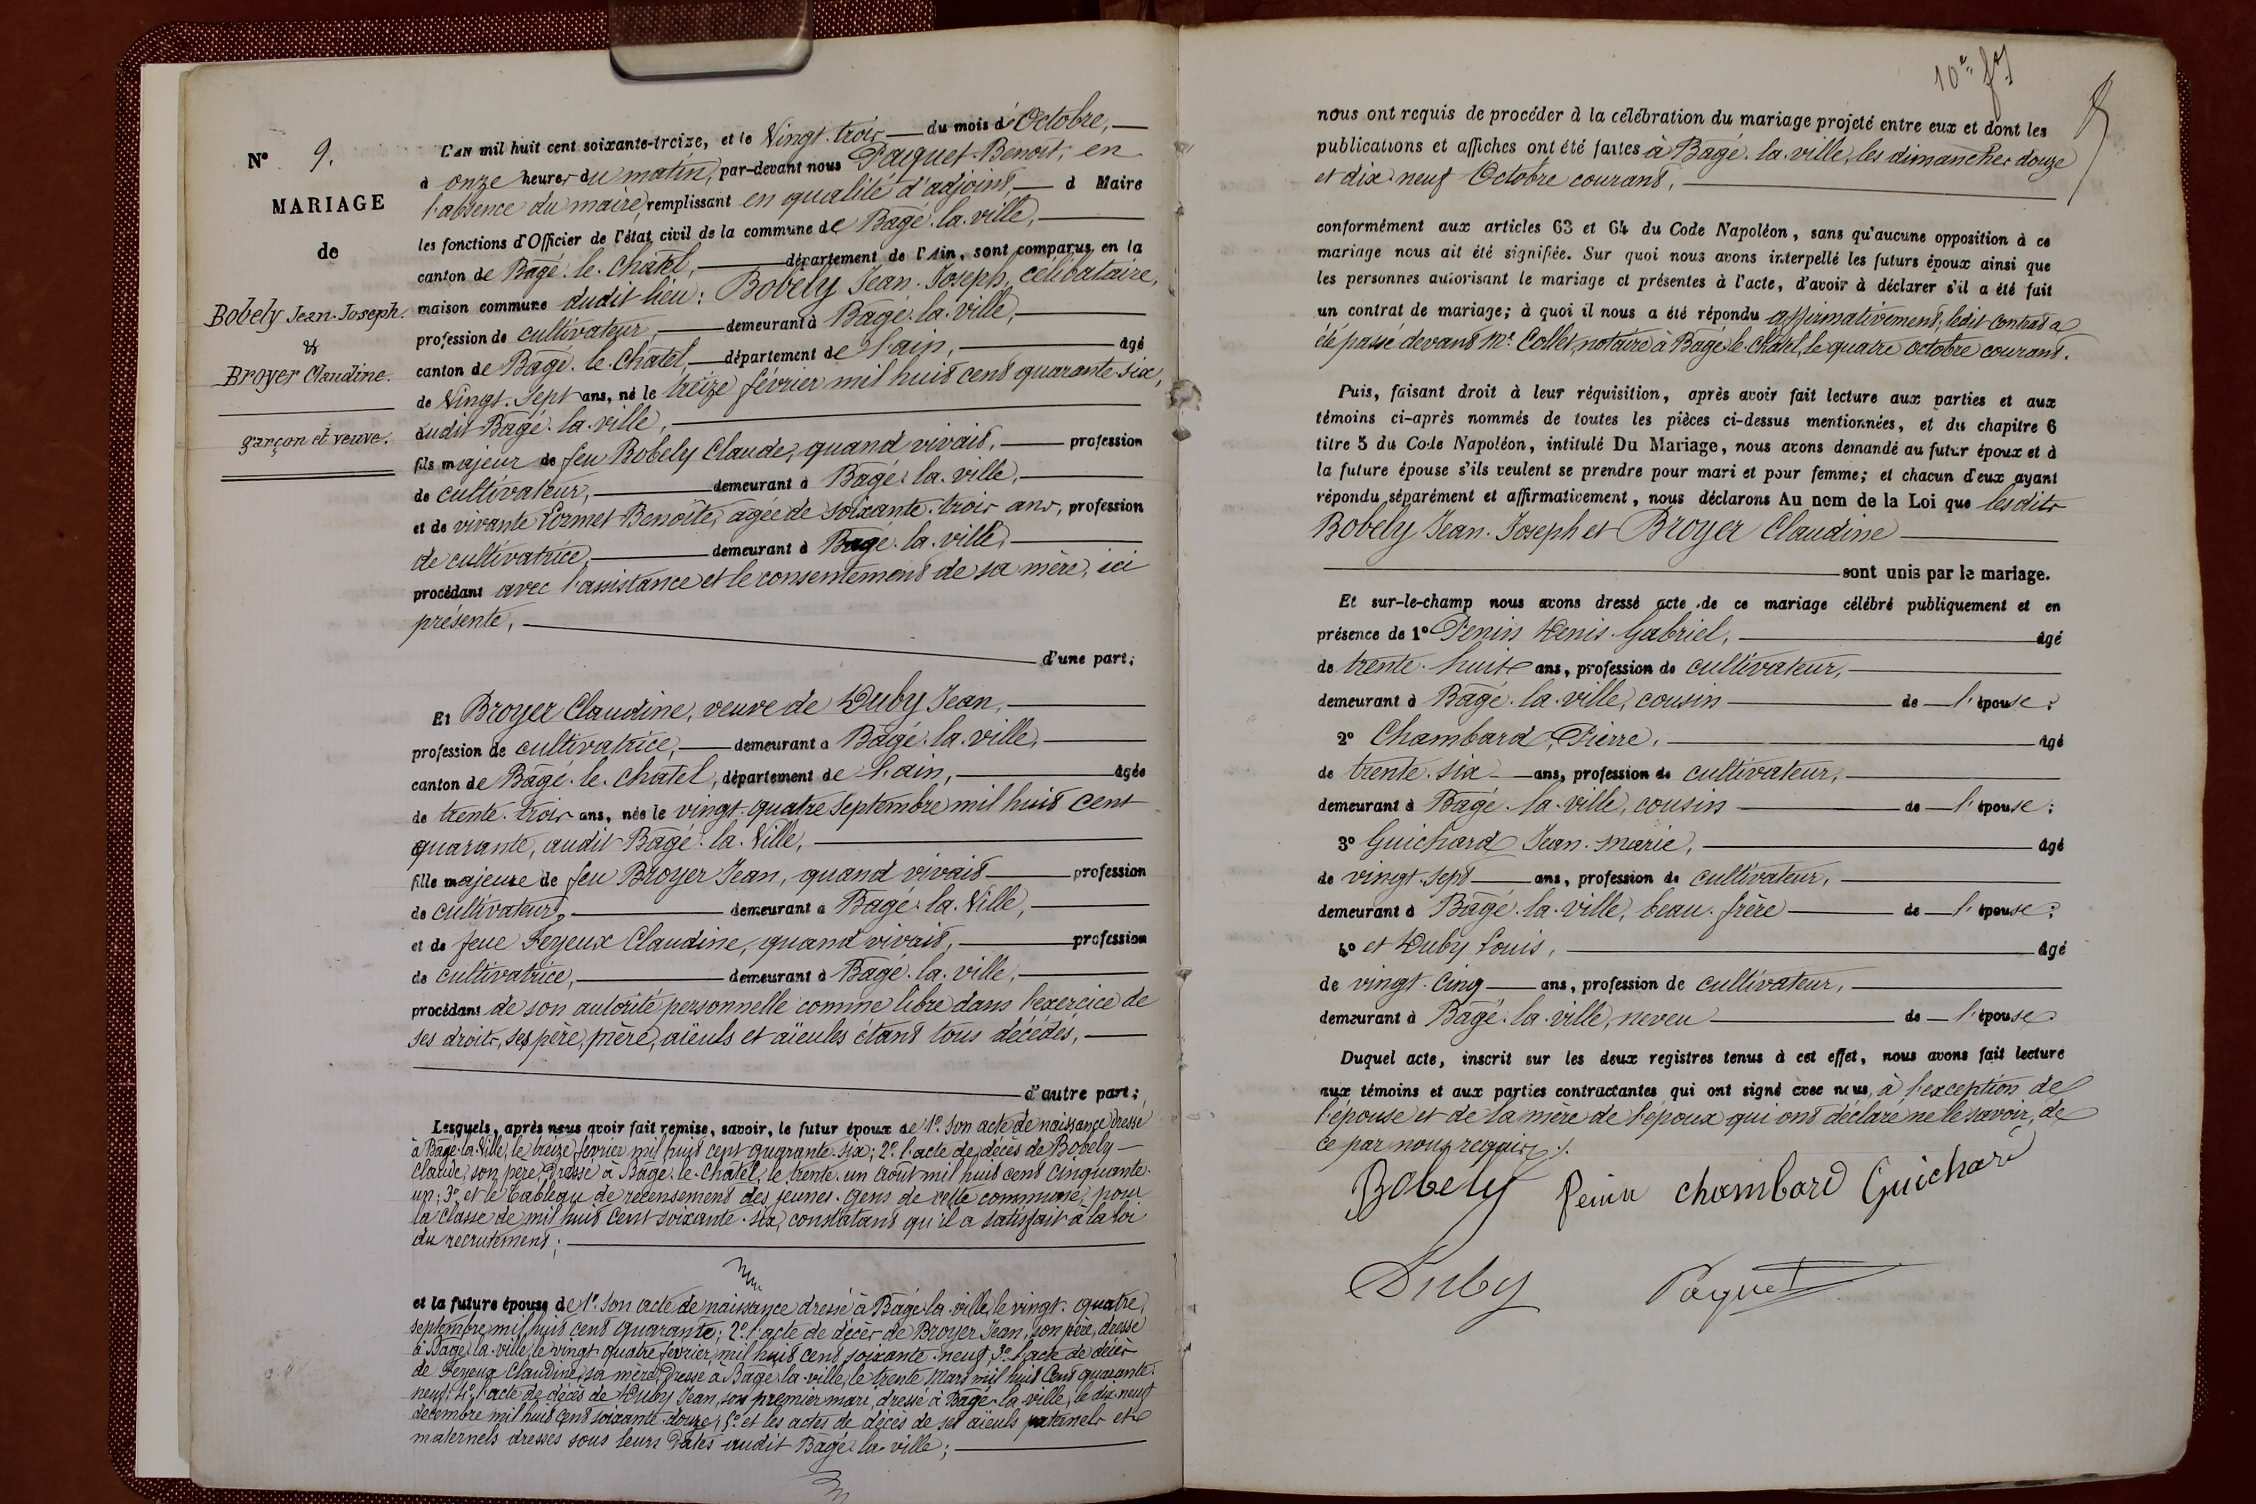 N° 9.
MARIAGE
de
Bobely Jean-Joseph.
&
Broyer Claudine.
garçon et veuve.
L'AN mil huit cent soixante-treize, et le Vingt-trois du mois d'Octobre,
à onze heures du matin, par-devant nous Paquet Benoit, en
l'absence du maire, remplissant en qualité d'adjoint, d Maire
les fonctions d'Officier de l'état civil de la commune de Bâgé-la-ville,
canton de Bâgé-le-Châtel, département de l'Ain, sont comparus en la
maison commune dudit lieu: Bobely Jean-Joseph, célibataire,
profession de cultivateur, demeurant à Bâgé-la-ville,
canton de Bâgé-le-châtel, département de l'ain, âgé
de Vingt-Sept ans, né le treize février mil huit cent quarante-six,
audit Bâgé-la-ville,
fils majeur de feu Bobely Claude, quand vivait, profession
de cultivateur, demeurant à Bâgé-la-ville,
et de vivante Cormet Benoîte, agée de soixante-trois ans, profession
de cultivatrice, demeurant à Bagé-la-ville,
procédant avec l'assistance et le consentement de sa mère, ici
présente,
d'une part;
Et Broyer Claudine, veuve de Duby Jean,
profession de cultivatrice, demeurant à Bâgé-la-ville,
canton de Bâgé-le-châtel, département de l'ain, âgée
de trente-trois ans, née le vingt-quatre septembre mil huit cent
quarante, audit Bâgé-la-Ville,
fille majeure de feu Broyer Jean, quand vivait profession
de cultivateur, demeurant à Bâgé-la-Ville,
et de feue Feyeux Claudine, quand vivait, profession
de cultivatrice, demeurant à Bâgé-la-ville,
procédant de son autorité personnelle comme libre dans l'exercice de
ses droits, ses père, mère, aïeuls et aïeules étant tous décédés,
d'autre part;
Lesquels, après nous avoir fait remise, savoir, le futur époux de 1° son acte de naissance dressé
à Bâgé-la-Ville, le treize février mil huit cent quarante-six; 2° l'acte de décès de Bobely
Claude, son père, dressé à Bâgé-le-Châtel, le trente-un août mil huit cent cinquante-
un; 3° et le tableau de recensement des jeunes-gens de cette commune, pour
la classe de mil huit cent soixante-six, constatant qu'il a satisfait à la loi
du recrutement;
et la future épouse de 1° son acte de naissance dressé à Bâgé-la-ville, le vingt-quatre
septembre mil huit cent quarante; 2° l'acte de décès de Broyer Jean, son père, dressé
à Bâgé-la-ville, le vingt-quatre février mil huit cent soixante-neuf, 3° l'acte de décès
de Feyeux Claudine, sa mère, dressé à Bâgé-la-ville, le trente Mars mil huit cent quarante-
neuf; 4° l'acte de décès de Duby Jean, son premier mari, dressé à Bâgé-la-ville, le dix-neuf
décembre mil huit cent soixante-douze; 5° et les actes de décès de ses aïeuls paternels et
maternels dressés sous leurs dates audit Bâgé-la-ville;
10e ft
nous ont requis de procéder à la célébration du mariage projeté entre eux et dont les
publications et affiches ont été faites à Bâgé-la-ville, les dimanches douze
et dix-neuf Octobre courant,
conformément aux articles 63 et 64 du Code Napoléon, sans qu'aucune opposition à ce
mariage nous ait été signifiée. Sur quoi nous avons interpellé les futurs époux ainsi que
les personnes autorisant le mariage et présentes à l'acte, d'avoir à déclarer s'il a été fait
un contrat de mariage; à quoi il nous a été répondu affirmativement, ledit contrat a
été passé devant Me Collet, notaire à Bâgé-le-châtel, le quatre octobre courant.
Puis, faisant droit à leur réquisition, après avoir fait lecture aux parties et aux
témoins ci-après nommés de toutes les pièces ci-dessus mentionnées, et du chapitre 6
titre 5 du Code Napoléon, intitulé Du Mariage, nous avons demandé au futur époux et à
la future épouse s'ils veulent se prendre pour mari et pour femme; et chacun d'eux ayant
répondu séparément et affirmativement, nous déclarons Au nom de la Loi que lesdits
Bobely Jean-Joseph et Broyer Claudine
sont unis par le mariage.
Et sur-le-champ nous avons dressé acte de ce mariage célébré publiquement et en
présence de 1° Penin Denis-Gabriel, âgé
de trente-huit ans, profession de cultivateur,
demeurant à Bâgé-la-ville, cousin de l'épouse;
2° Chambard Pierre, âgé
de trente-six ans, profession de cultivateur,
demeurant à Bâgé-la-ville, cousin de l'épouse;
3° Guichard Jean-marie, âgé
de vingt-sept ans, profession de cultivateur,
demeurant à Bâgé-la-ville, beau-frère de l'épouse;
4° et Duby Louis, âgé
de vingt-cinq ans, profession de cultivateur,
demeurant à Bâgé-la-ville, neveu de l'épouse
Duquel acte, inscrit sur les deux registres tenus à cet effet, nous avons fait lecture
aux témoins et aux parties contractantes qui ont signé avec nous, à l'exception de
l'épouse et de la mère de l'époux qui ont déclaré ne le savoir, de
ce par nous requis.
Bobely Penin chambard Guichard
Duby Paquet